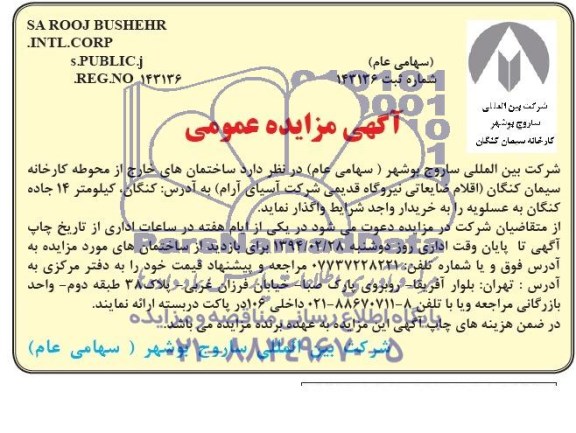 SA ROOJ BUSHEHR
.INTL.CORP
s.PUBLIC.j
.REG.NO ۱۴۳۱۳۶
(سهامی عام)
شماره ثبت ۱۴۳۱۳۶
شرکت بین المللی
ساروج بوشهر
کارخانه سیمان کنگان
آگهی مزایده عمومی
شرکت بین المللی ساروج بوشهر ( سهامی عام) در نظر دارد ساختمان های خارج از محوطه کارخانه
سیمان کنگان (اقلام ضایعاتی نیروگاه قدیمی شرکت آسیای آرام) به آدرس: کنگان، کیلومتر ۱۴ جاده
کنگان به عسلویه را به خریدار واجد شرایط واگذار نماید.
از متقاضیان شرکت در مزایده دعوت می شود در یکی از ایام هفته در ساعات اداری از تاریخ چاپ
آگهی تا پایان وقت اداری روز دوشنبه ۱۳۹۴/۰۲/۲۸ برای بازدید از ساختمان های مورد مزایده به
آدرس فوق و یا شماره تلفن: ۰۷۷۳۷۲۲۸۲۳۱ مراجعه و پیشنهاد قیمت خود را به دفتر مرکزی به
آدرس : تهران: بلوار آفریقا- روبروی پارک صبا- خیابان فرزان غربی- پلاک۳۸ طبقه دوم- واحد
بازرگانی مراجعه ویا با تلفن ۸-۸۸۶۷۰۷۱۱-۰۲۱ داخلی ۱۰۶در پاکت دربسته ارائه نمایند.
در ضمن هزینه های چاپ آگهی این مزایده به عهده برنده مزایده می باشد...
شرکت بین المللی ساروج بوشهر ( سهامی عام)
پایگاه اطلاع رسانی مناقصه و مزایده
۰۲۱-۸۸۳۴۹۶۷۰-۵